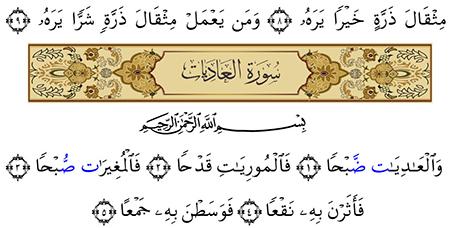 مِثْقَالَ ذَرَّةٍ خَيْرًا يَرَهُۥ ﴿٨﴾ وَمَن يَعْمَلْ مِثْقَالَ ذَرَّةٍ شَرًّا يَرَهُۥ ﴿٩﴾
سُورَةُ العَادِيَات
بِسْمِ ٱللَّهِ ٱلرَّحْمَٰنِ ٱلرَّحِيمِ
وَٱلْعَٰدِيَٰت ضَّبْحًا ﴿١﴾ فَٱلْمُورِيَٰتِ قَدْحًا ﴿٢﴾ فَٱلْمُغِيرَٰت صُّبْحًا ﴿٣﴾
فَأَثَرْنَ بِهِۦ نَقْعًا ﴿٤﴾ فَوَسَطْنَ بِهِۦ جَمْعًا ﴿٥﴾